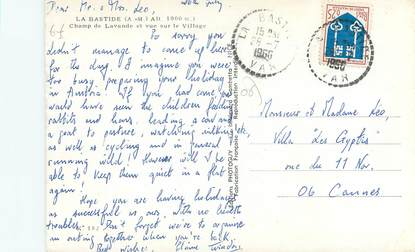 Dear Mr. & Mrs. Leo,
LA BASTIDE (A.-M.) AD. 1000 m.)
Champ de Lavande et vue sur le Village
So sorry you
didn't manage to come up here
for the day. I imagine you were
too busy preparing your holiday
in Austria! If you had come you
would have seen the children feeding
rabbits and hens, leading a cow and
a goat to pasture, watching
as well as cycling and in general
running wild! However will I be
able to keep them quiet in a flat
again!
Hope you are having holidays
as successful as ours, with no health
troubles. Don't forget we're to organise
an outing together when you're back.
Best wishes,
LA BASTIDE
15 H
1966
VAR
1966
VAR
Monsieur et Madame Leo,
Villa "Les Cryptis"
rue du 11 Nov.
06 Cannes
06
Fabrication Française
Reproduction